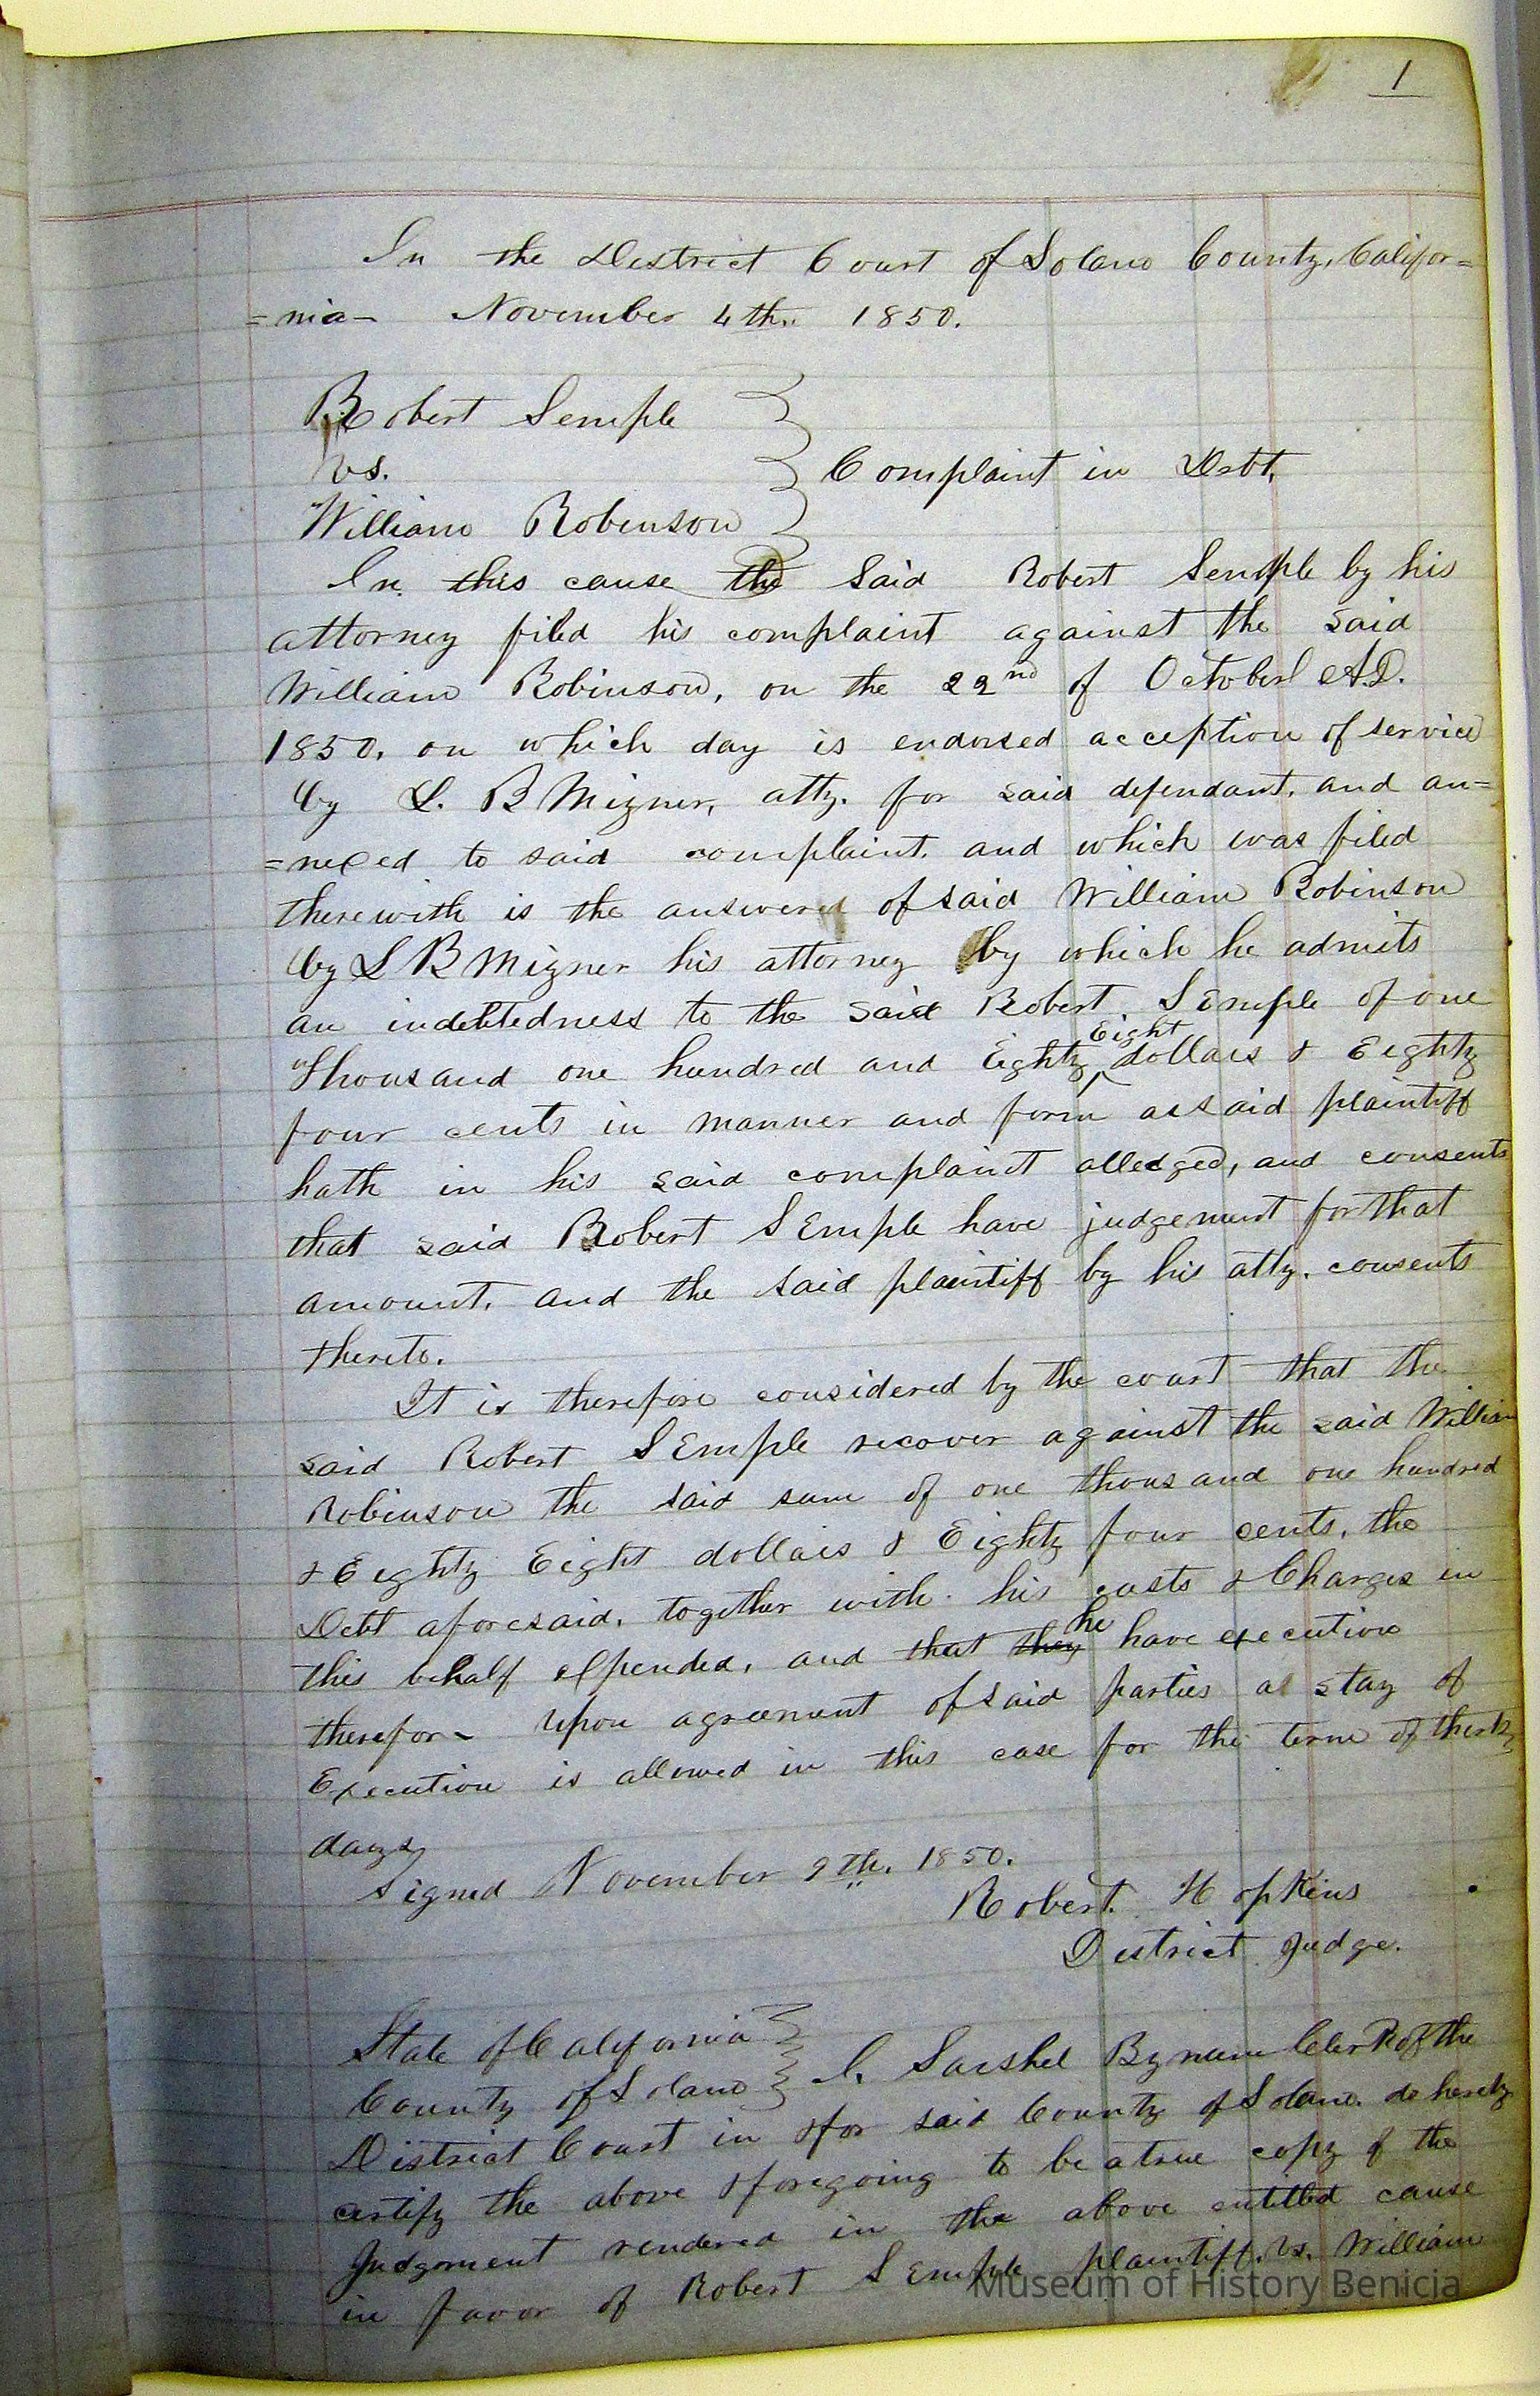 1
In the District Court of Solano County, Califor=
=nia- November 4th. 1850.
Robert Semple
vs.
Complaint in Debt.
William Robinson
In this cause the Said Robert Semple by his
attorney filed his complaint against the said
William Robinson, on the 22nd of October A.D.
1850. on which day is endorsed acception of service
by L. B Mizner, atty. for said defendant. and an=
=nexed to said complaint. and which was filed
therewith is the answered of said William Robinson
by L B Mizner his attorney by which he admits
an indebtedness to the said Robert Semple of one
Thousand one hundred and Eighty Eight dollars & Eighty
four cents in manner and form as said plaintiff
hath in his said complaint alledged, and consents
that said Robert SEmple have judgement for that
amount. and the said plaintiff by his atty. consents
thereto.
It is therefore considered by the court that the
said Robert SEmple recover against the said William
Robinson the said sum of one thousand one hundred
& Eighty Eight dollars & Eighty four cents. the
Debt aforesaid. together with his costs & Charges in
this behalf expended, and that they he have execution
therefor- Upon agreement of said parties a stay of
Execution is allowed in this case for the term of thirty
days
Signed November 9th. 1850.
Robert. Hopkins
District Judge.
State of California
County of Solano
I. Sarshel Bynum Clerk of the
District Court in & for said County of Solano. do hereby
certify the above & foregoing to be a true copy of the
Judgment rendered in the above entitled cause
in favor of Robert SEmple plaintiff. vs. William
Museum of History Benicia